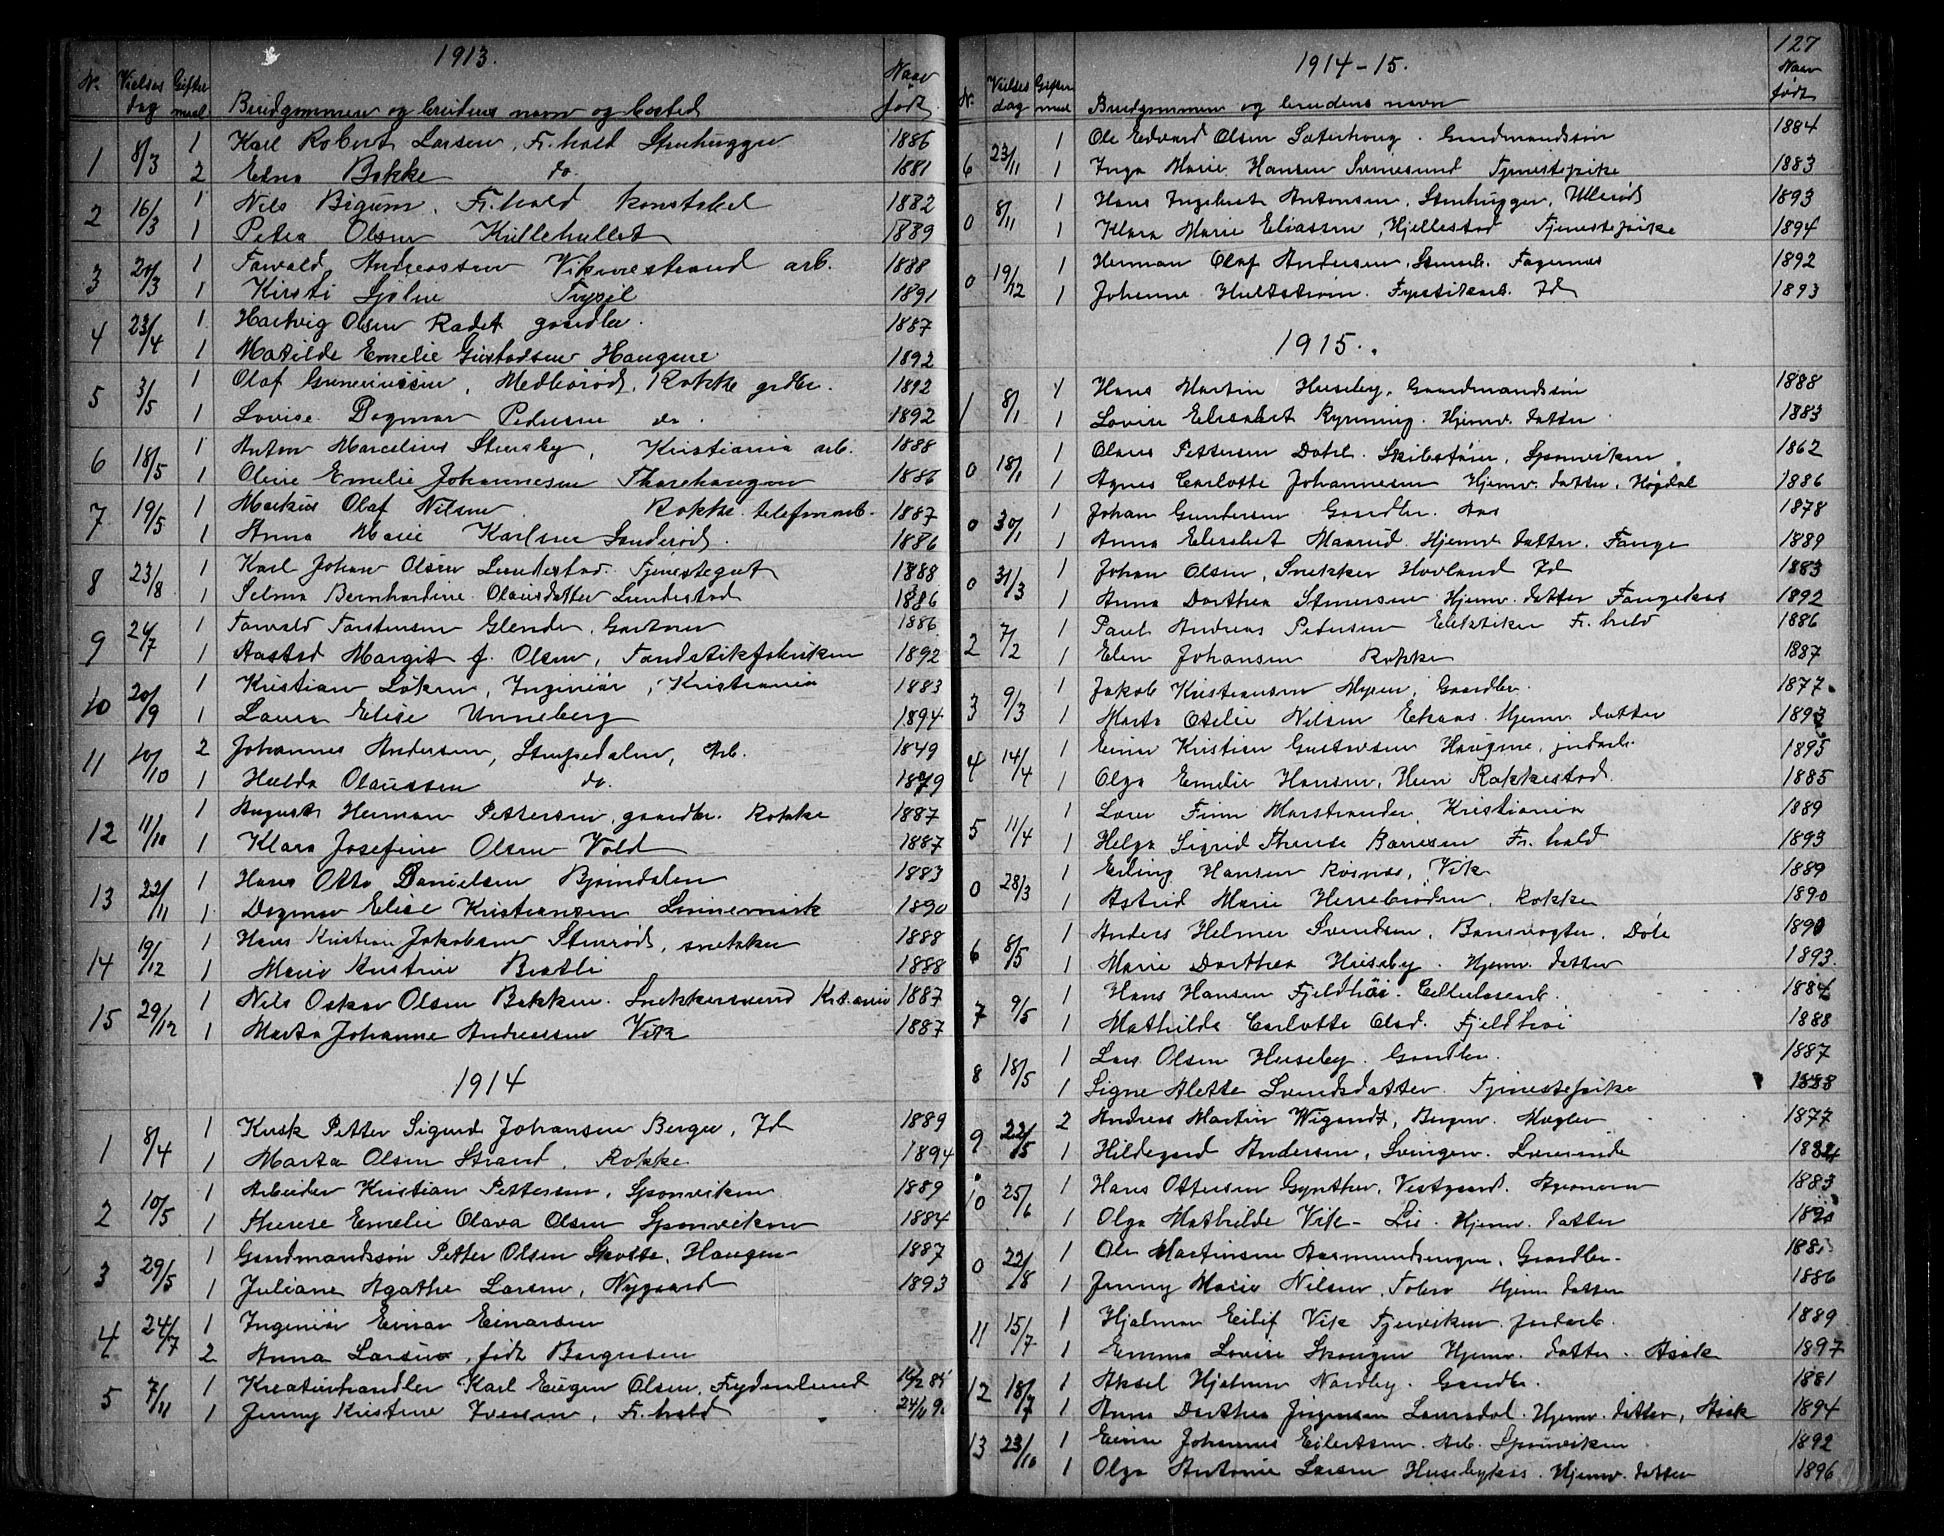 1913.
Nr. Vielses dag Giftermaal Brudgommens og brudens navn og bosted Naar født
1 8/3 1 Karl Robert Larsen, Fr.hald Stenhugger 1886
2 Edna Bakke do. 1881
2 16/3 1 Nils Bigum, Fr.hald Konstabel 1882
1 Petra Olsen Kullehullet 1889
3 24/3 1 Torvald Andreassen Viksmestrand arb. 1888
1 Kirsti Sjølie Trysil 1891
4 23/4 1 Hartvig Olsen Radet gaardbr. 1887
1 Matilde Emelie Gustavsen Haugene 1892
5 3/5 1 Olaf Gunneriussen, Medbørød, Rokke grdbr. 1892
1 Lovise Dagmar Pedersen do. 1892
6 18/5 1 Anton Marcelius Stensby, Kristiania arb. 1888
1 Oline Emelie Johannesen Tharehaugen 1886
7 19/5 1 Markus Olaf Nilsen Rokke. telefonarb. 1887
1 Anna Marie Karlsen Sanderød. 1886
8 23/8 1 Karl Johan Olsen Lundestad. Tjenestegut 1888
1 Selma Bernhardine Olausdatter Lundestad 1886
9 26/7 1 Torvald Torstensen Glende, Gartner 1886
1 Aasta Margit f. Olsen, Tændstikfabrikken 1892
10 20/9 1 Kristian Løken, Ingeniør, Kristiania 1883
1 Laura Elise Unneberg 1894
11 10/10 2 Johannes Andersen, Stenpedalen, Arb. 1849
1 Hulda Olaussen do. 1879
12 11/10 1 August Herman Pettersen, gaardbr. Rokke 1887
1 Klara Josefine Olsen Vold 1887
13 22/11 1 Hans Otto Danielsen Bjørndalen 1883
1 Dagmar Elise Kristiansen Linnemark 1890
14 19/12 1 Hans Kristian Jakobsen Stenrød, snekker 1888
1 Marie Kristine Bratli 1888
15 29/12 1 Nils Oskar Olsen Bakken. Snekkersvend Krania 1887
1 Marta Johanne Andreassen Vik 1887
1914
1 8/4 1 Kusk Petter Sigurd Johansen Berger, Id 1889
1 Marta Olsen Strand, Rokke 1894
2 10/5 1 Arbeider Kristian Pettersen, Sponviken 1889
1 Therese Emelie Olava Olsen Sponviken 1884
3 29/5 1 Gaardmandssøn Petter Olsen Skotte, Haugen 1887
1 Juliane Agathe Larsen, Nygaard 1893
4 24/7 1 Ingeniør Einar Einarsen
2 Anna Larsen, født Børgesen
5 7/11 1 Kreaturhandler Karl Eugen Olsen, Frydenlund
1 Jenny Kristine Iversen, Fr.hald
1914-15. 127
Nr. Vielses dag Giftermaal Brudgommens og brudens navn Naar født
6 23/11 1 Ole Edvard Olsen Sæterhaug. Gaardmandssøn 1884
1 Inga Marie Hansen Svinesund Tjenestepike 1883
0 8/11 1 Hans Ingebret Antonsen, Stenhugger, Ullerød 1893
1 Klara Marie Eliassen, Hjellestad Tjenestepike 1894
0 19/12 1 Herman Olaf Andersen, Stenarb. Fagernes 1892
1 Johanne Hultstrøm. Fyrstikarb. Id 1893
1915.
1 8/1 1 Hans Martin Huseby, Gaardmandssøn 1888
1 Lovise Elisabet Ryrning. Hjemv. datter 1883
0 18/1 1 Olaus Pettersen Dahl. Skibstøm. Sponviken 1862
1 Agnes Carlotte Johannesen Hjemv. datter, Høgdal 1886
0 30/1 1 Johan Gundersen Gaardbr. Aas 1878
1 Anna Elisabet Maarud. Hjemv datter. Fange 1889
0 31/3 1 Johan Olsen, Snekker Hovland Id 1883
1 Anna Dorthea Stenersen Hjemv. datter Fangekas 1892
2 7/2 1 Paul Andreas Pedersen Elektriker Fr.hald 1886
1 Elen Johansen Rokke 1887
3 9/3 1 Jakob Kristiansen Myren, Gaardbr. 1877
1 Marta Otelie Nilsen Ekaas. Hjemv datter 1893
4 14/4 1 Einar Kristian Gustavsen Haugene, jordarb. 1895
1 Olga Emelie Hansen, Hun Rakkestad. 1885
5 11/4 1 Lorer Finn Marstrander, Kristiania 1889
1 Helga Sigrid Therese Børresen Fr.hald 1893
0 28/3 1 Erling Hansen Rosnæs, Vik 1889
1 Astrid Marie Herrebrøden, Rokke 1890
6 8/5 1 Anders Helmer Svendsen, Banevogter. Døle 1890
1 Marie Dorthea Huseby. Hjemv. datter 1893
7 9/5 1 Hans Hansen Fjeldhøi. Cellulosearb. 1884
1 Mathilde Carlotte Olsd. Fjeldhøi 1888
8 18/5 1 Lars Olsen Huseby. Gaardbr. 1887
1 Signe Alette Svendsdatter. Tjenestepike 1888
9 22/5 2 Andreas Martin Wigandt, Bergen. Mægler 1877
1 Hildegard Andersen, Svingen. Lærerinde
10 25/6 1 Hans Ottersen Gynther, Vestgaard. Agronom 1883
1 Olga Mathilde Vik - Lie. Hjemv. datter
0 22/8 1 Ole Martinsen Aasmundrengen, Gaardbr.
1 Jenny Marie Nilsen, Torp Hjem datter 1886
11 15/7 1 Hjalmar Eilif Vik Tjerviken. Jordarb. 1889
1 Emma Lovise Skaugen Hjemv. datter. Asak 1897
12 18/7 1 Aksel Hjalmar Nordby. Gaardbr. 1881
1 Anna Dorthea Jørgensen Lauradal. Hjemv. datter, Asak 1894
13 23/10 1 Einar Johannes Eilertsen. Arb. Sponviken 1892
1 Olga Antonie Larsen Husebykas. Hjemv. datter 1896